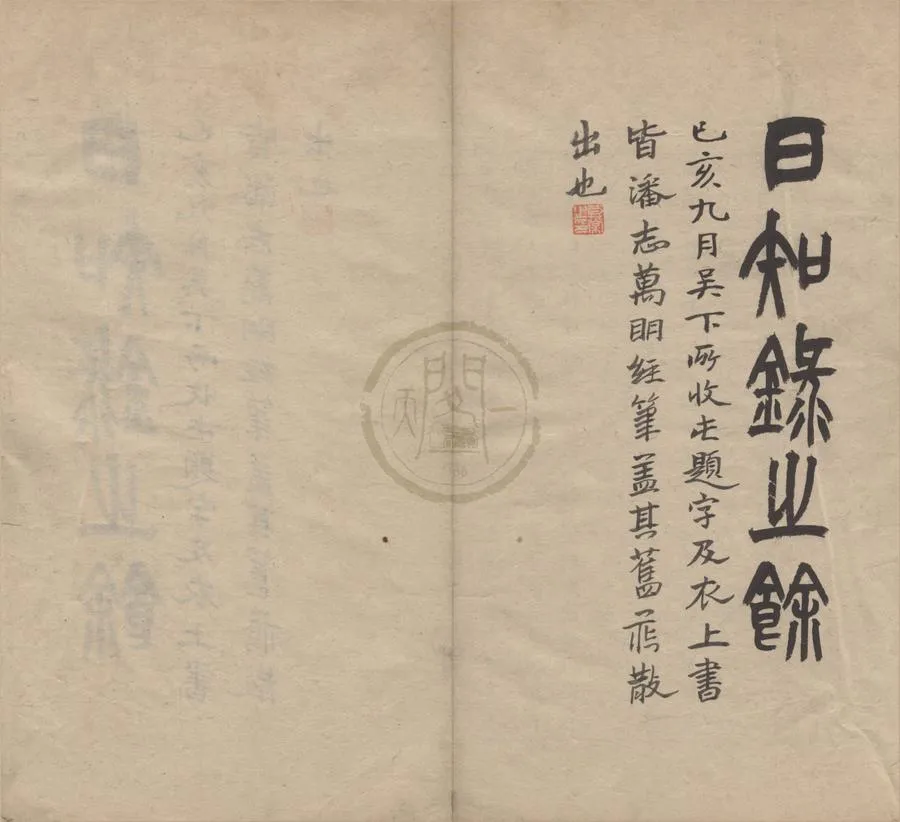 日知錄之餘
已亥九月吴下所收此題字及衣上書
皆潘志萬明經筆蓋其舊藏散
出也